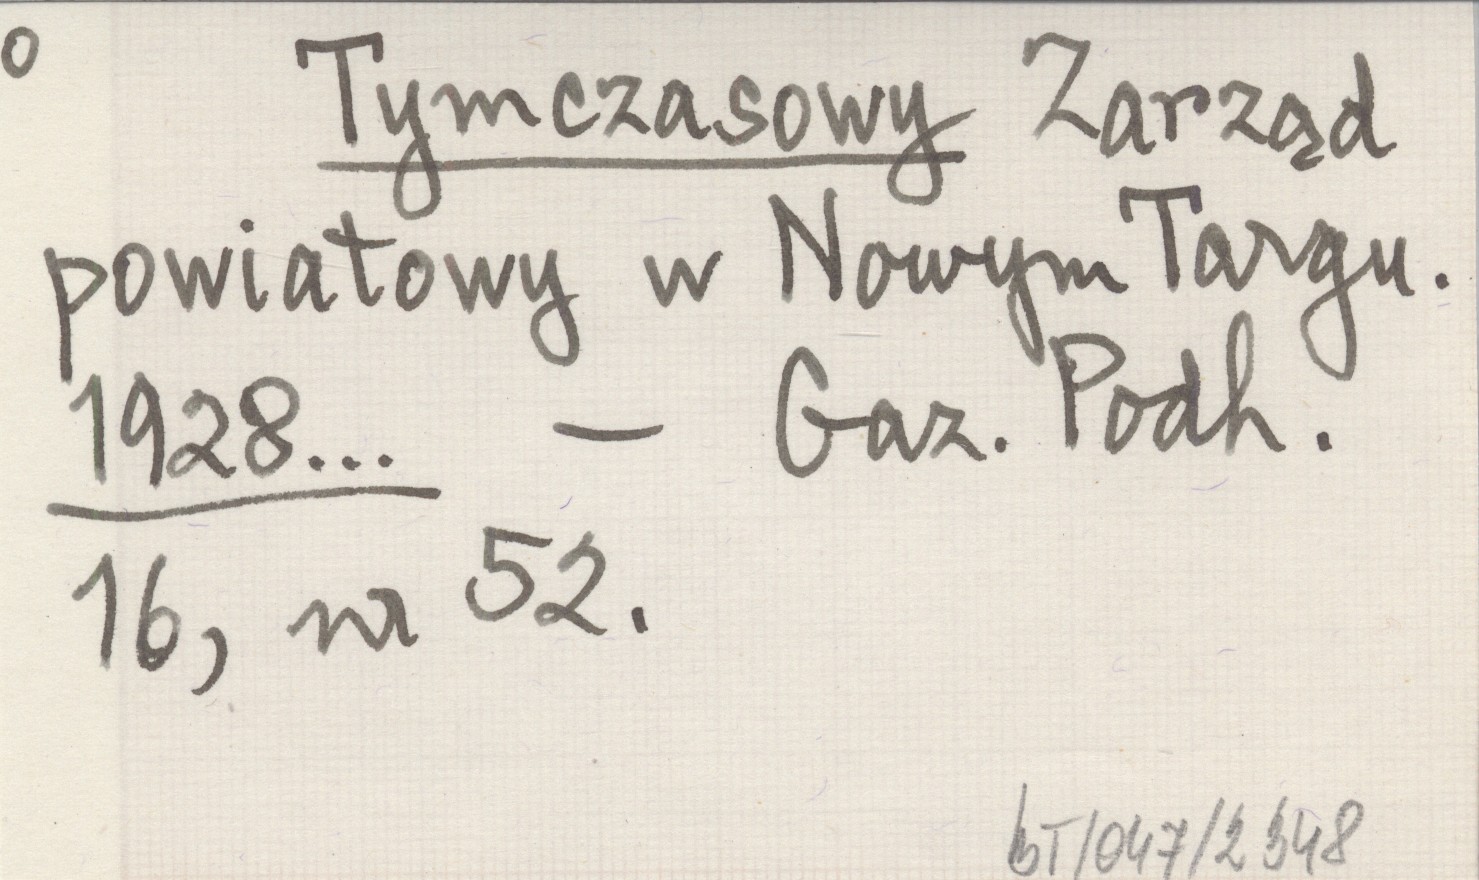 o
Tymczasowy Zarząd
powiatowy w Nowym Targu.
1928... — Gaz. Podh.
16, nr 52.
bT/047/2348